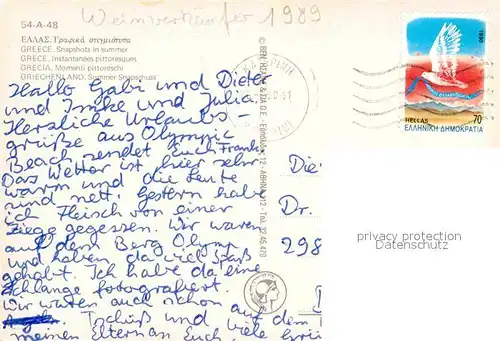 Weinverkäufer 1989
54-A-48
ΕΛΛΑΣ. Γραφικά στιγμιότυπα
GREECE. Snapshots in summer
GRECE. Instantanées pittoresques
GRECIA. Momenti pittoreschi
GRIECHENLAND. Summer Snapschuss
Hallo Gabi und Dieter
und Imke und Julia.
Herzliche Urlaubs-
grüße aus Olympic
Beach sendet Euch Frank
Das Wetter ist hier sehr
warm und die Leute
sind nett. Gestern habe
ich Fleisch von einer
Ziege gegessen. Wir waren
auf dem Berg Olymp
und haben da viel Spaß
gehabt. Ich habe da eine
Schlange fotografiert.
Wir waren auch schon auf dem
Tschüß und viele
meinen Eltern an Euch.
ΑΘΗΝΑ
1990
HELLAS 70
ΕΛΛΗΝΙΚΗ ΔΗΜΟΚΡΑΤΙΑ
Die
Dr.
298
privacy protection
Datenschutz